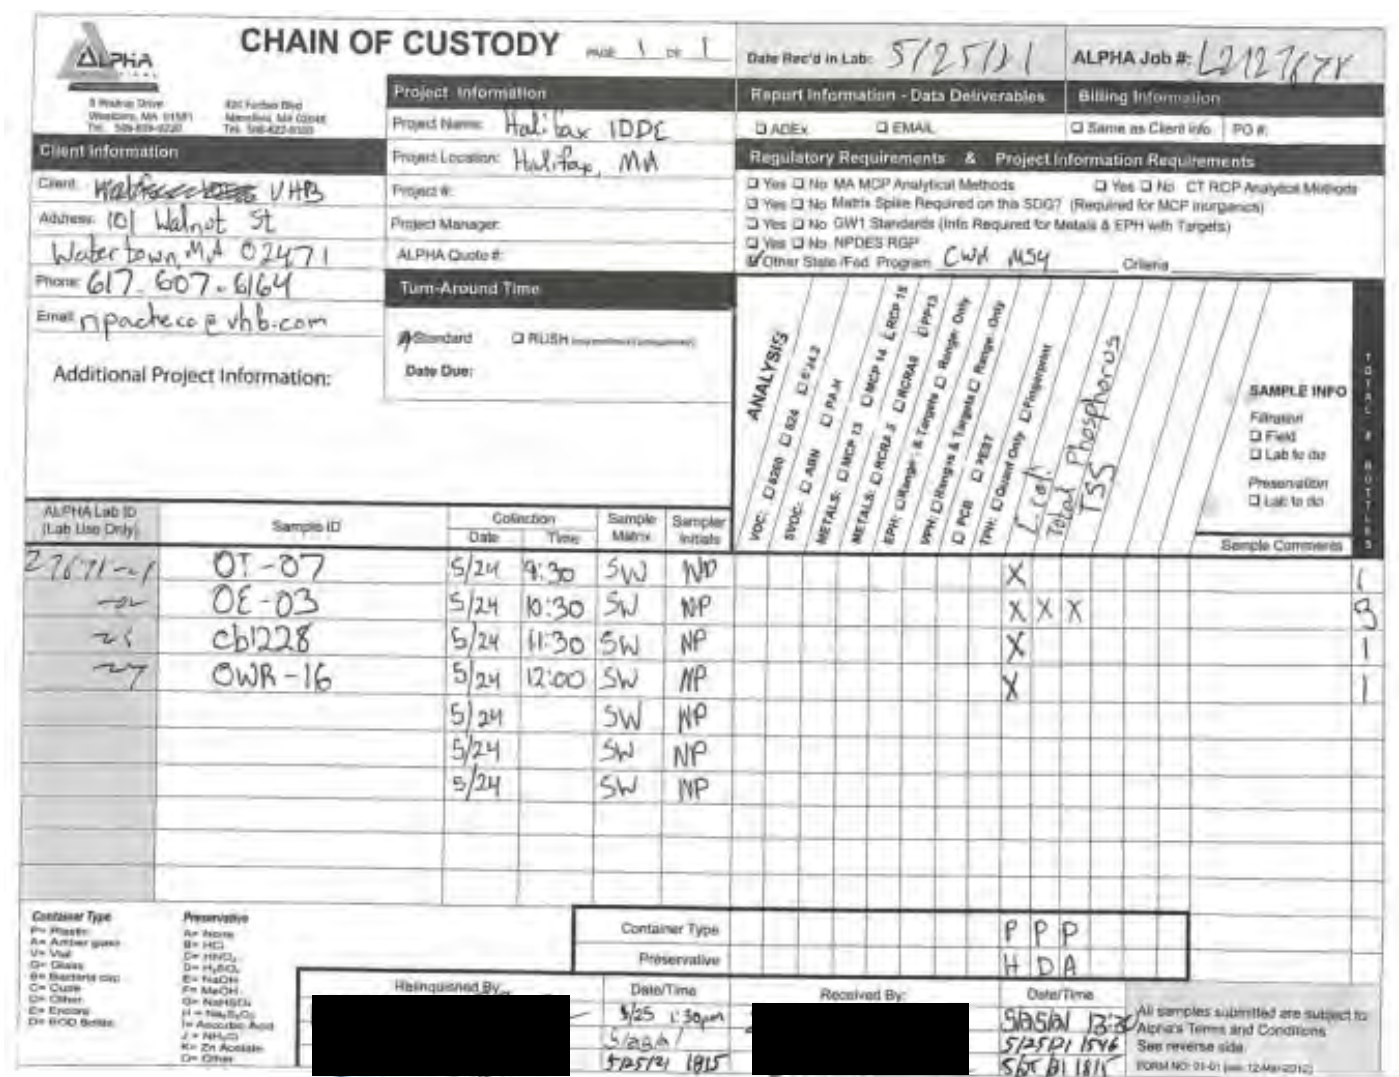 ALPHA
CHAIN OF CUSTODY PAGE 1 OF 1
Date Rec'd in Lab: 5/25/21
ALPHA Job #:
8 Walkup Drive
Westboro, MA 01581
Tel: 508-898-9220
320 Forbes Blvd
Mansfield, MA 02048
Tel: 508-822-9300
Client Information
Client: VHB
Address: 101 Walnut St
Watertown, MA 02471
Phone: 617-607-6164
Email: npacheco@vhb.com
Additional Project Information:
Project Information
Project Name: Halifax IDDE
Project Location: Halifax, MA
Project #:
Project Manager:
ALPHA Quote #:
Turn-Around Time
Standard RUSH
Date Due:
Report Information - Data Deliverables
ADEx EMAIL
Billing Information
Same as Client info PO #:
Regulatory Requirements & Project Information Requirements
Yes No MA MCP Analytical Methods Yes No CT RCP Analytical Methods
Yes No Matrix Spike Required on this SDG? (Required for MCP Inorganics)
Yes No GW1 Standards (Info Required for Metals & EPH with Targets)
Yes No NPDES RGP
Other State /Fed Program CWA MS4 Criteria
ANALYSIS
VOC: 8260 624 524.2
SVOC: ABN PAH
METALS: MCP 13 MCP 14 RCP 15
METALS: RCRA5 RCRA8 PP13
EPH: Ranges & Targets Ranges Only
VPH: Ranges & Targets Ranges Only
PCB PEST
TPH: Quant Only Fingerprint
E coli
Total Phosphorus
TSS
SAMPLE INFO
Filtration
Field
Lab to do
Preservation
Lab to do
Sample Comments
TOTAL # BOTTLES
ALPHA Lab ID
(Lab Use Only)
Sample ID
Collection
Date Time
Sample
Matrix
Sampler
Initials
OT-07 5/24 9:30 SW NP X 1
-02 OE-03 5/24 10:30 SW NP X X X 3
cb1228 5/24 11:30 SW NP X 1
OWR-16 5/24 12:00 SW NP X 1
5/24 SW NP
5/24 SW NP
5/24 SW NP
Container Type
P= Plastic
A= Amber glass
V= Vial
G= Glass
B= Bacteria cup
C= Cube
O= Other
E= Encore
D= BOD Bottle
Preservative
A= None
B= HCl
C= HNO₃
D= H₂SO₄
E= NaOH
F= MeOH
G= NaHSO₄
H = Na₂S₂O₃
I= Ascorbic Acid
J = NH₄Cl
K= Zn Acetate
O= Other
Container Type P P P
Preservative H D A
Relinquished By:
Date/Time
5/25 1:30pm
5/25/21 1815
Received By:
Date/Time
5/25/21 13:30
5/25/21 1546
5/25/21 1815
All samples submitted are subject to
Alpha's Terms and Conditions
See reverse side.
FORM NO: 01-01 (rev. 12-Mar-2012)